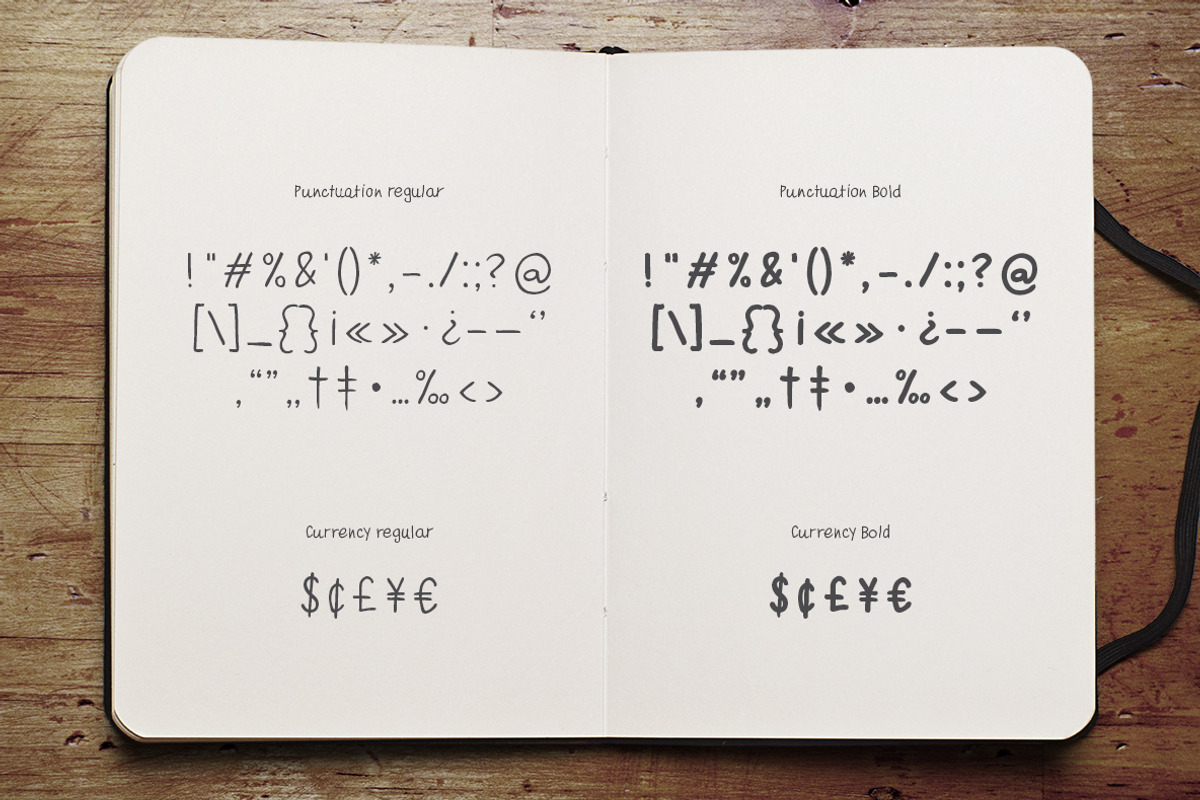 Punctuation regular
! " # % & ' ( ) * , - . / : ; ? @
[ \ ] _ { } ¡ « » · ¿ – — ‘ ’
‚ “ ” „ † ‡ • … ‰ < >
Currency regular
$ ¢ £ ¥ €
Punctuation Bold
! " # % & ' ( ) * , - . / : ; ? @
[ \ ] _ { } ¡ « » · ¿ – — ‘ ’
‚ “ ” „ † ‡ • … ‰ < >
Currency Bold
$ ¢ £ ¥ €